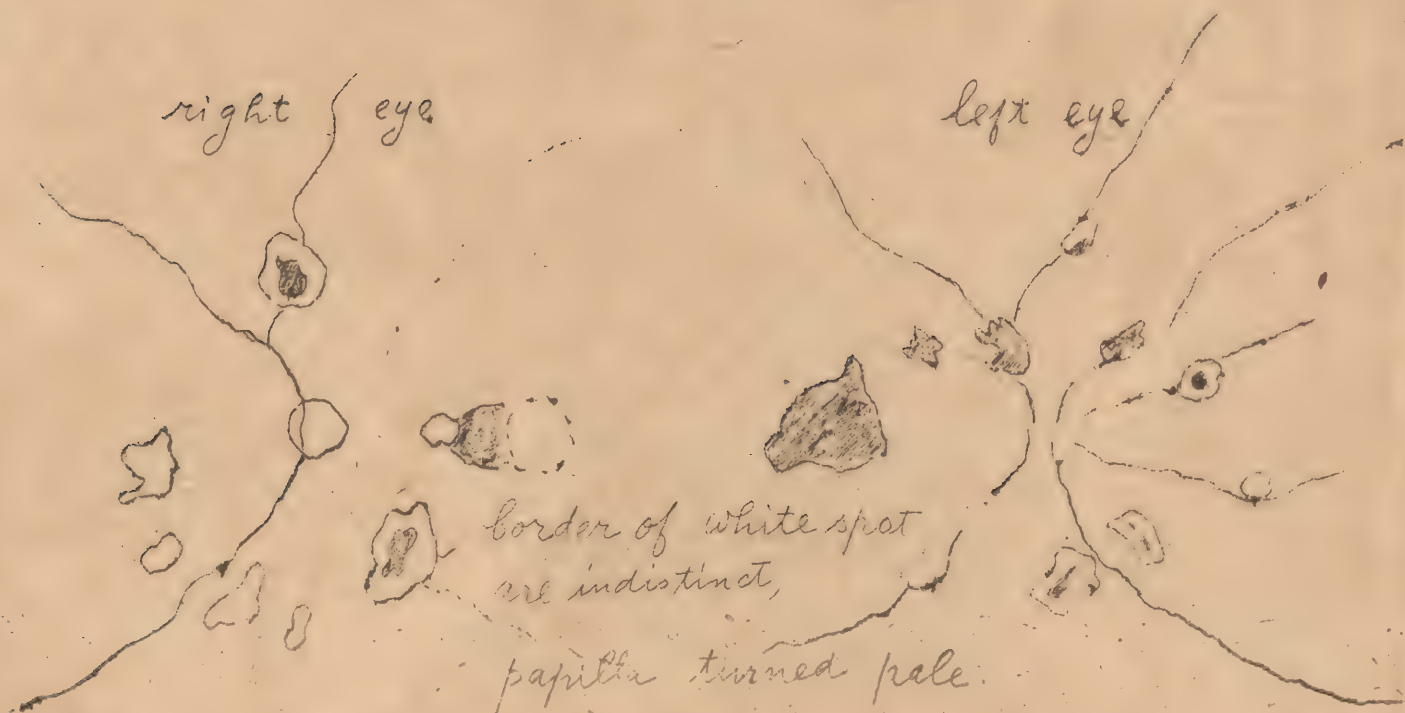 right eye
left eye
border of white spot
are indistinct,
papilla turned pale.